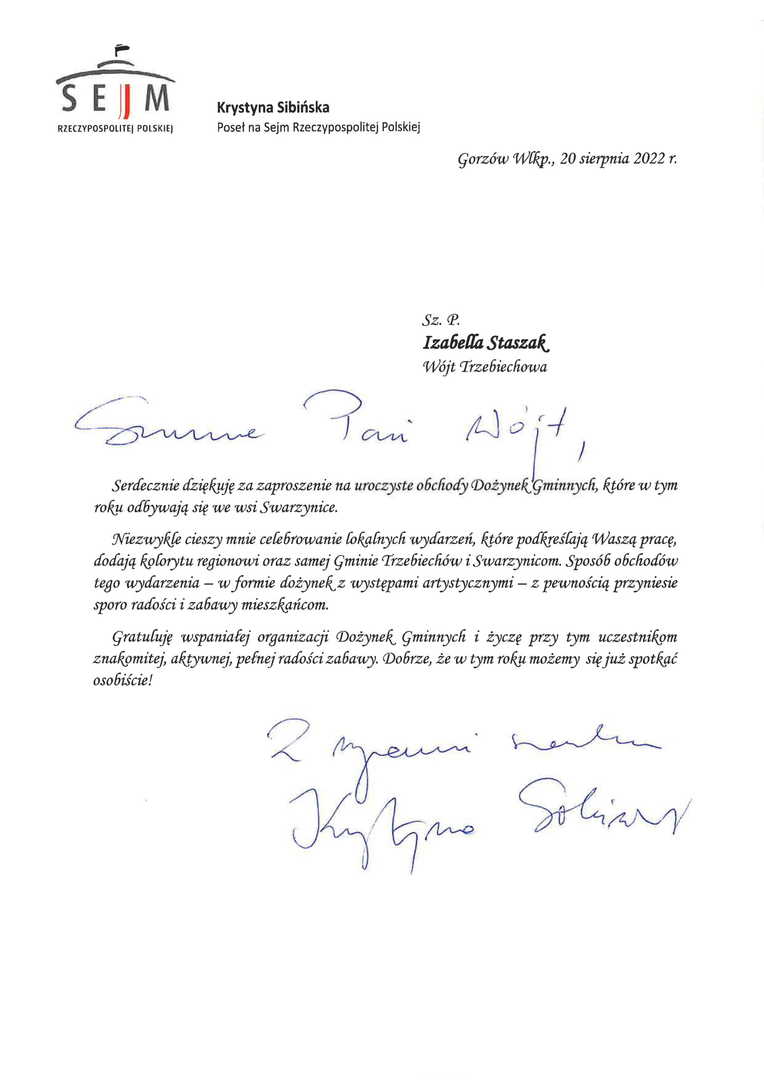 SEJM
RZECZYPOSPOLITEJ POLSKIEJ
Krystyna Sibińska
Poseł na Sejm Rzeczypospolitej Polskiej
Gorzów Wlkp., 20 sierpnia 2022 r.
Sz. P.
Izabella Staszak
Wójt Trzebiechowa
Szanowna Pani Wójt,
Serdecznie dziękuję za zaproszenie na uroczyste obchody Dożynek Gminnych, które w tym
roku odbywają się we wsi Swarzynice.
Niezwykle cieszy mnie celebrowanie lokalnych wydarzeń, które podkreślają Waszą pracę,
dodają kolorytu regionowi oraz samej Gminie Trzebiechów i Swarzynicom. Sposób obchodów
tego wydarzenia – w formie dożynek z występami artystycznymi – z pewnością przyniesie
sporo radości i zabawy mieszkańcom.
Gratuluję wspaniałej organizacji Dożynek Gminnych i życzę przy tym uczestnikom
znakomitej, aktywnej, pełnej radości zabawy. Dobrze, że w tym roku możemy się już spotkać
osobiście!
Z wyrazami szacunku
Krystyna Sibińska